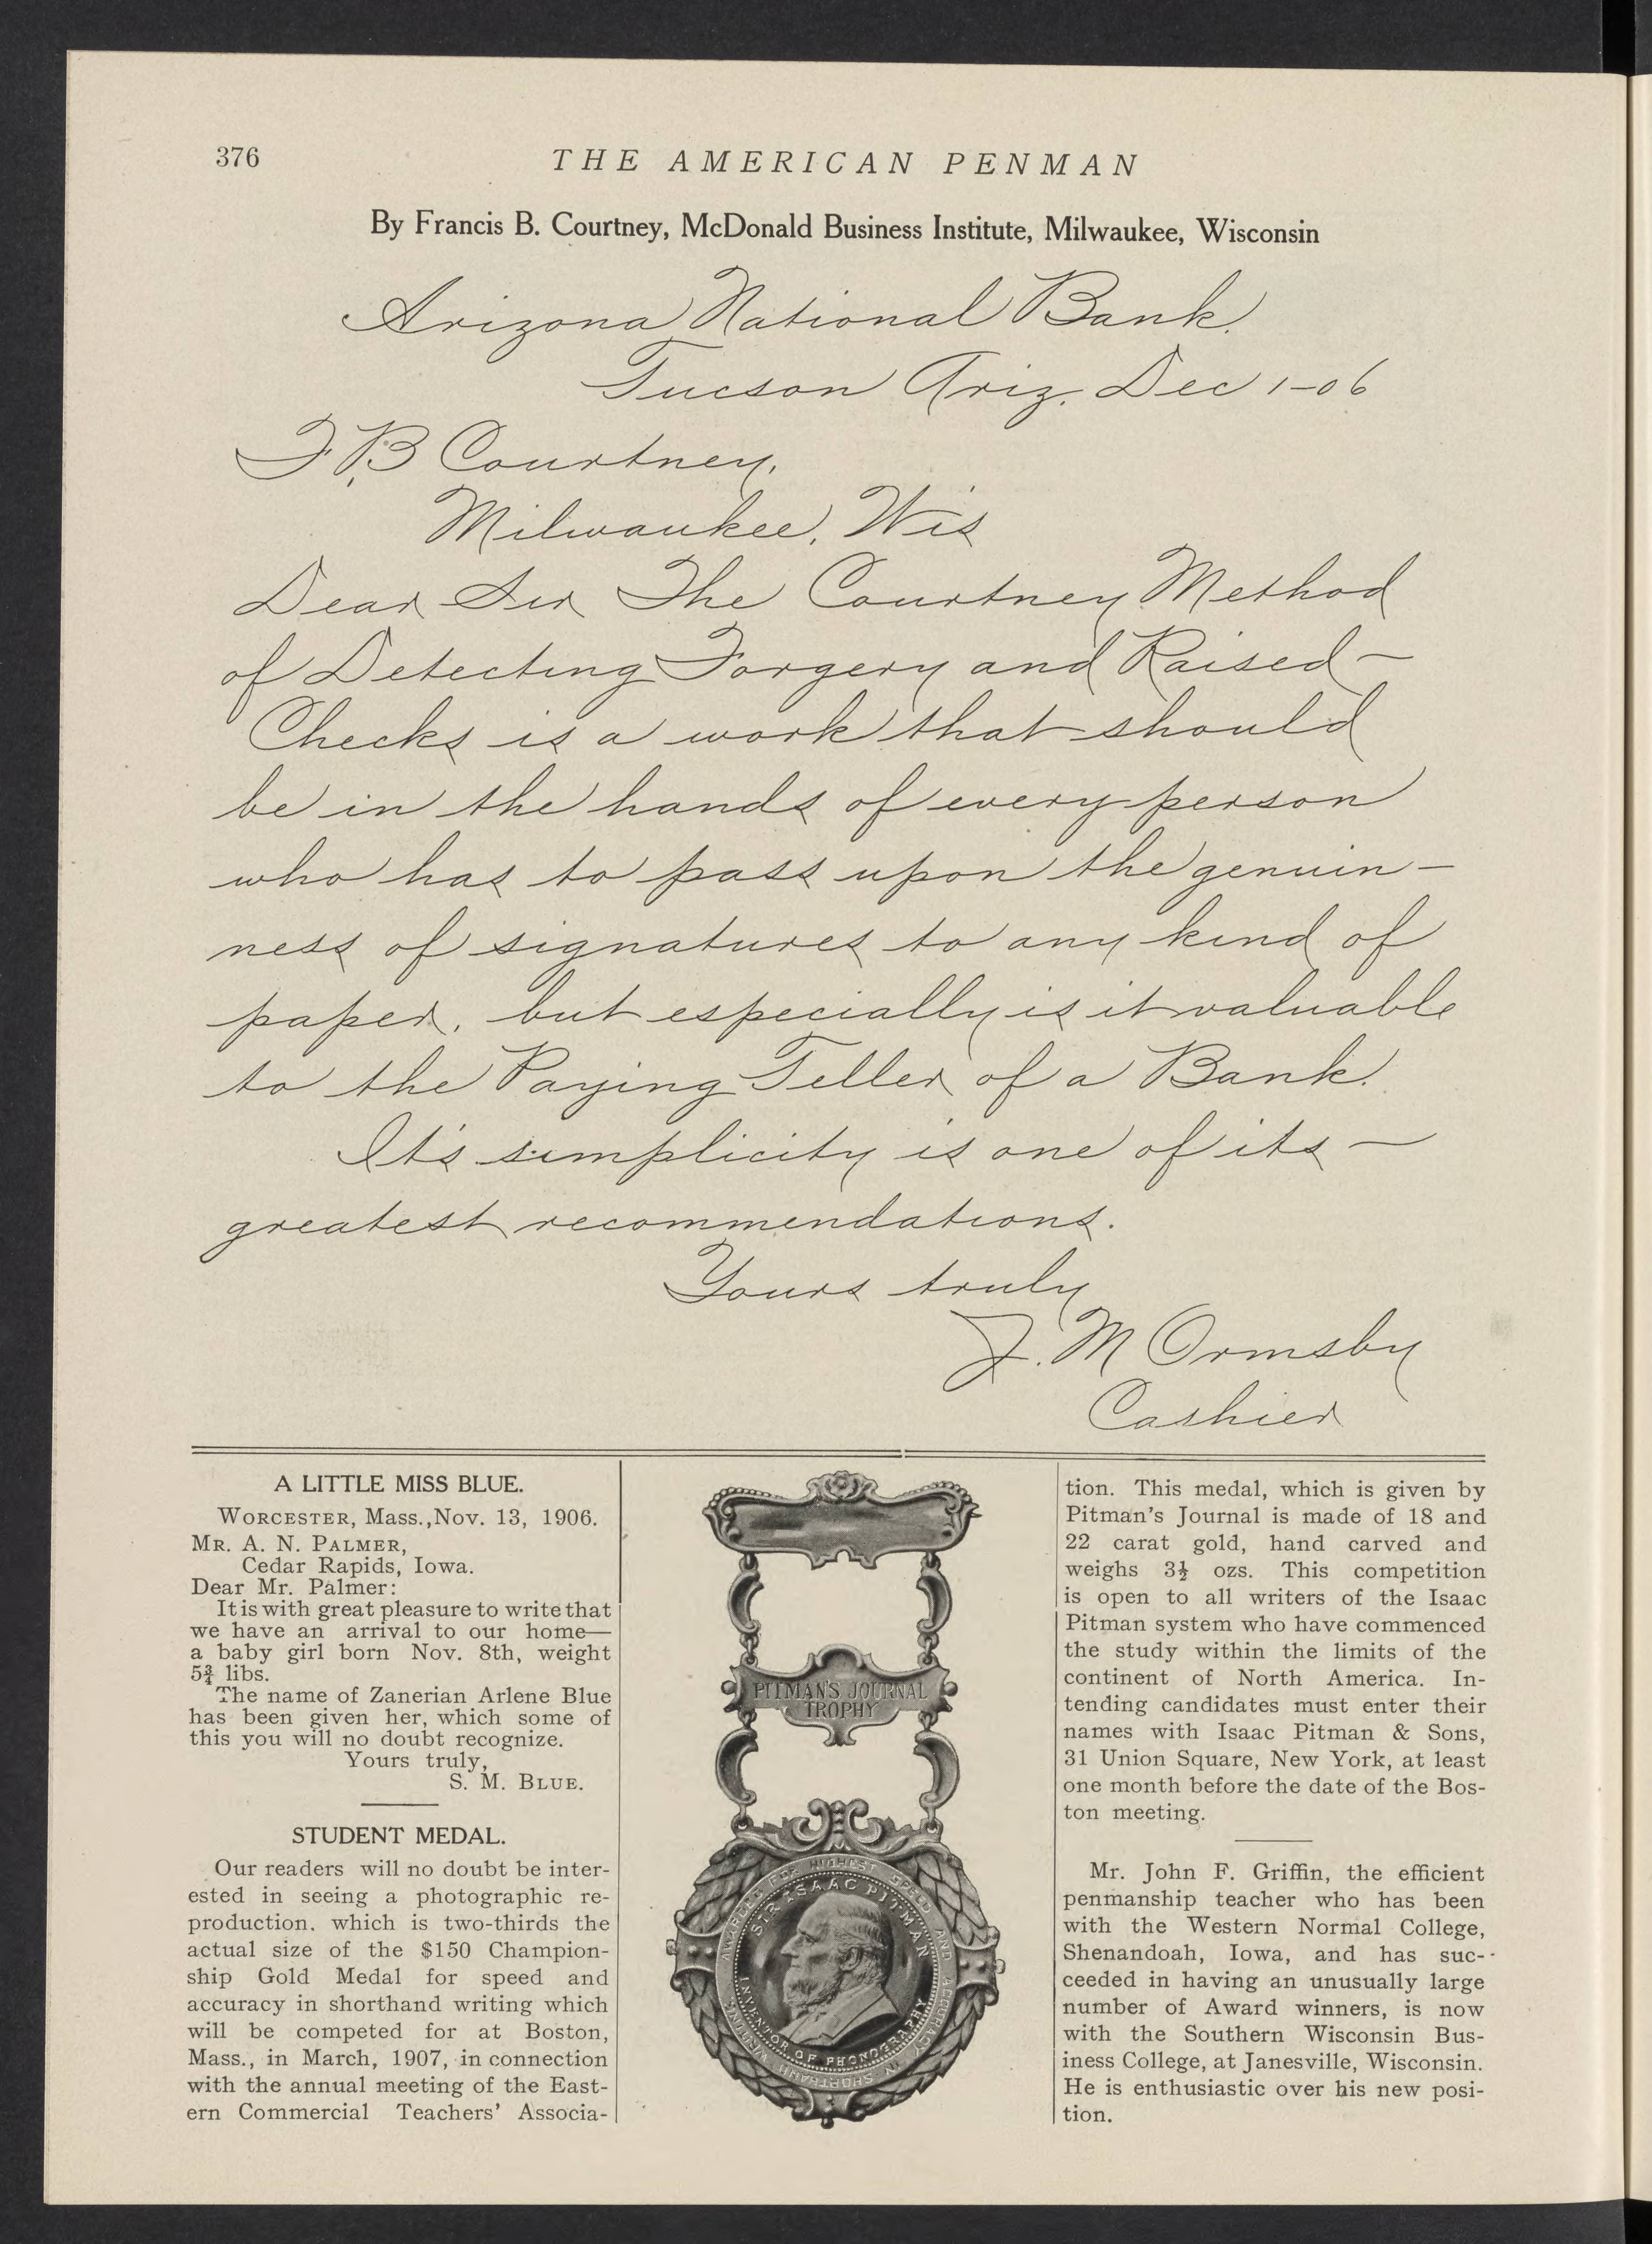 376
THE AMERICAN PENMAN
By Francis B. Courtney, McDonald Business Institute, Milwaukee, Wisconsin
Arizona National Bank.
Tucson Ariz. Dec 1-06
F.B Courtney,
Milwaukee, Wis
Dear Sir The Courtney Method
of Detecting Forgery and Raised-
Checks is a work that should
be in the hands of every person
who has to pass upon the genuin-
ness of signatures to any kind of
paper, but especially is it valuable
to the Paying Teller of a Bank.
It's simplicity is one of its -
greatest recommendations.
Yours truly
J. M Ormsby
Cashier
A LITTLE MISS BLUE.
WORCESTER, Mass.,Nov. 13, 1906.
MR. A. N. PALMER,
Cedar Rapids, Iowa.
Dear Mr. Palmer:
It is with great pleasure to write that
we have an arrival to our home—
a baby girl born Nov. 8th, weight
5¾ libs.
The name of Zanerian Arlene Blue
has been given her, which some of
this you will no doubt recognize.
Yours truly,
S. M. BLUE.
STUDENT MEDAL.
Our readers will no doubt be inter-
ested in seeing a photographic re-
production. which is two-thirds the
actual size of the $150 Champion-
ship Gold Medal for speed and
accuracy in shorthand writing which
will be competed for at Boston,
Mass., in March, 1907, in connection
with the annual meeting of the East-
ern Commercial Teachers' Associa-
PITMAN'S JOURNAL
TROPHY
AWARDED FOR HIGHEST SPEED AND ACCURACY IN SHORTHAND WRITING
SIR ISAAC PITMAN
INVENTOR OF PHONOGRAPHY
tion. This medal, which is given by
Pitman's Journal is made of 18 and
22 carat gold, hand carved and
weighs 3½ ozs. This competition
is open to all writers of the Isaac
Pitman system who have commenced
the study within the limits of the
continent of North America. In-
tending candidates must enter their
names with Isaac Pitman & Sons,
31 Union Square, New York, at least
one month before the date of the Bos-
ton meeting.
Mr. John F. Griffin, the efficient
penmanship teacher who has been
with the Western Normal College,
Shenandoah, Iowa, and has suc-
ceeded in having an unusually large
number of Award winners, is now
with the Southern Wisconsin Bus-
iness College, at Janesville, Wisconsin.
He is enthusiastic over his new posi-
tion.